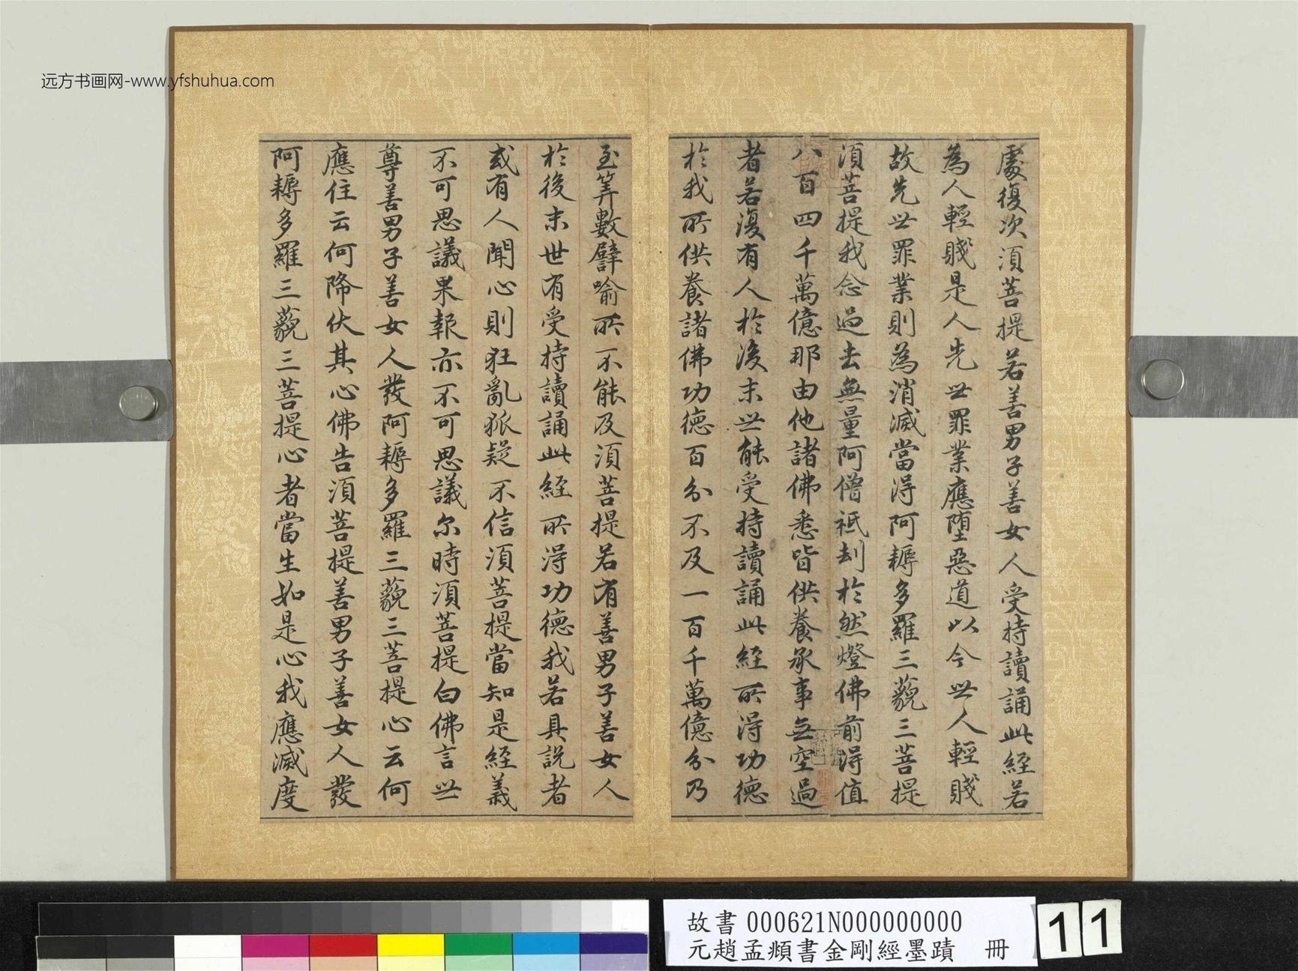 远方书画网-www.yfshuhua.com
處復次須菩提若善男子善女人受持讀誦此經若
為人輕賤是人先世罪業應堕惡道以今世人輕賤
故先世罪業則為消滅當得阿耨多羅三藐三菩提
須菩提我念過去無量阿僧祇刦於然燈佛前得值
八百四千萬億那由他諸佛悉皆供養承事無空過
者若復有人於後末世能受持讀誦此經所得功德
於我所供養諸佛功德百分不及一百千萬億分乃
至筭數譬喻所不能及須菩提若有善男子善女人
於後末世有受持讀誦此經所得功德我若具說者
或有人聞心則狂亂狐疑不信須菩提當知是經義
不可思議果報亦不可思議尔時須菩提白佛言世
尊善男子善女人發阿耨多羅三藐三菩提心云何
應住云何降伏其心佛告須菩提善男子善女人發
阿耨多羅三藐三菩提心者當生如是心我應滅度
故書 000621N000000000
元趙孟頫書金剛經墨蹟 冊
11